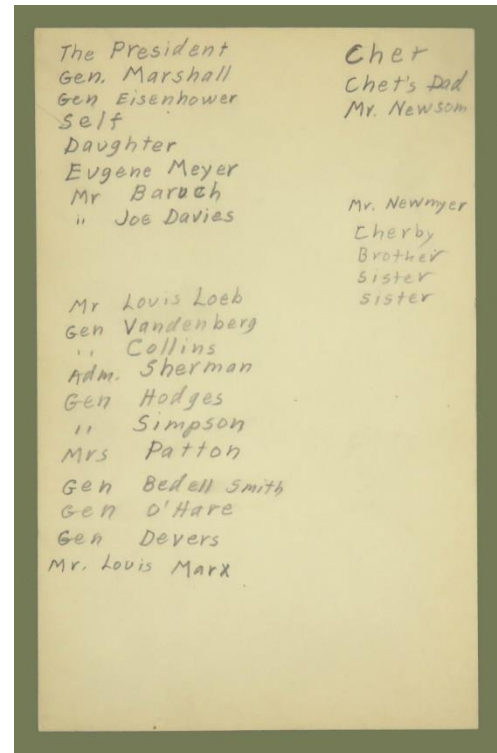 The President
Gen. Marshall
Gen Eisenhower
Self
Daughter
Eugene Meyer
Mr Baruch
" Joe Davies
Mr Louis Loeb
Gen Vandenberg
" Collins
Adm. Sherman
Gen Hodges
" Simpson
Mrs Patton
Gen Bedell Smith
Gen O'Hare
Gen Devers
Mr. Louis Marx
Cher
Chet's Dad
Mr. Newsom
Mr. Newmyer
Cherby
Brother
Sister
Sister